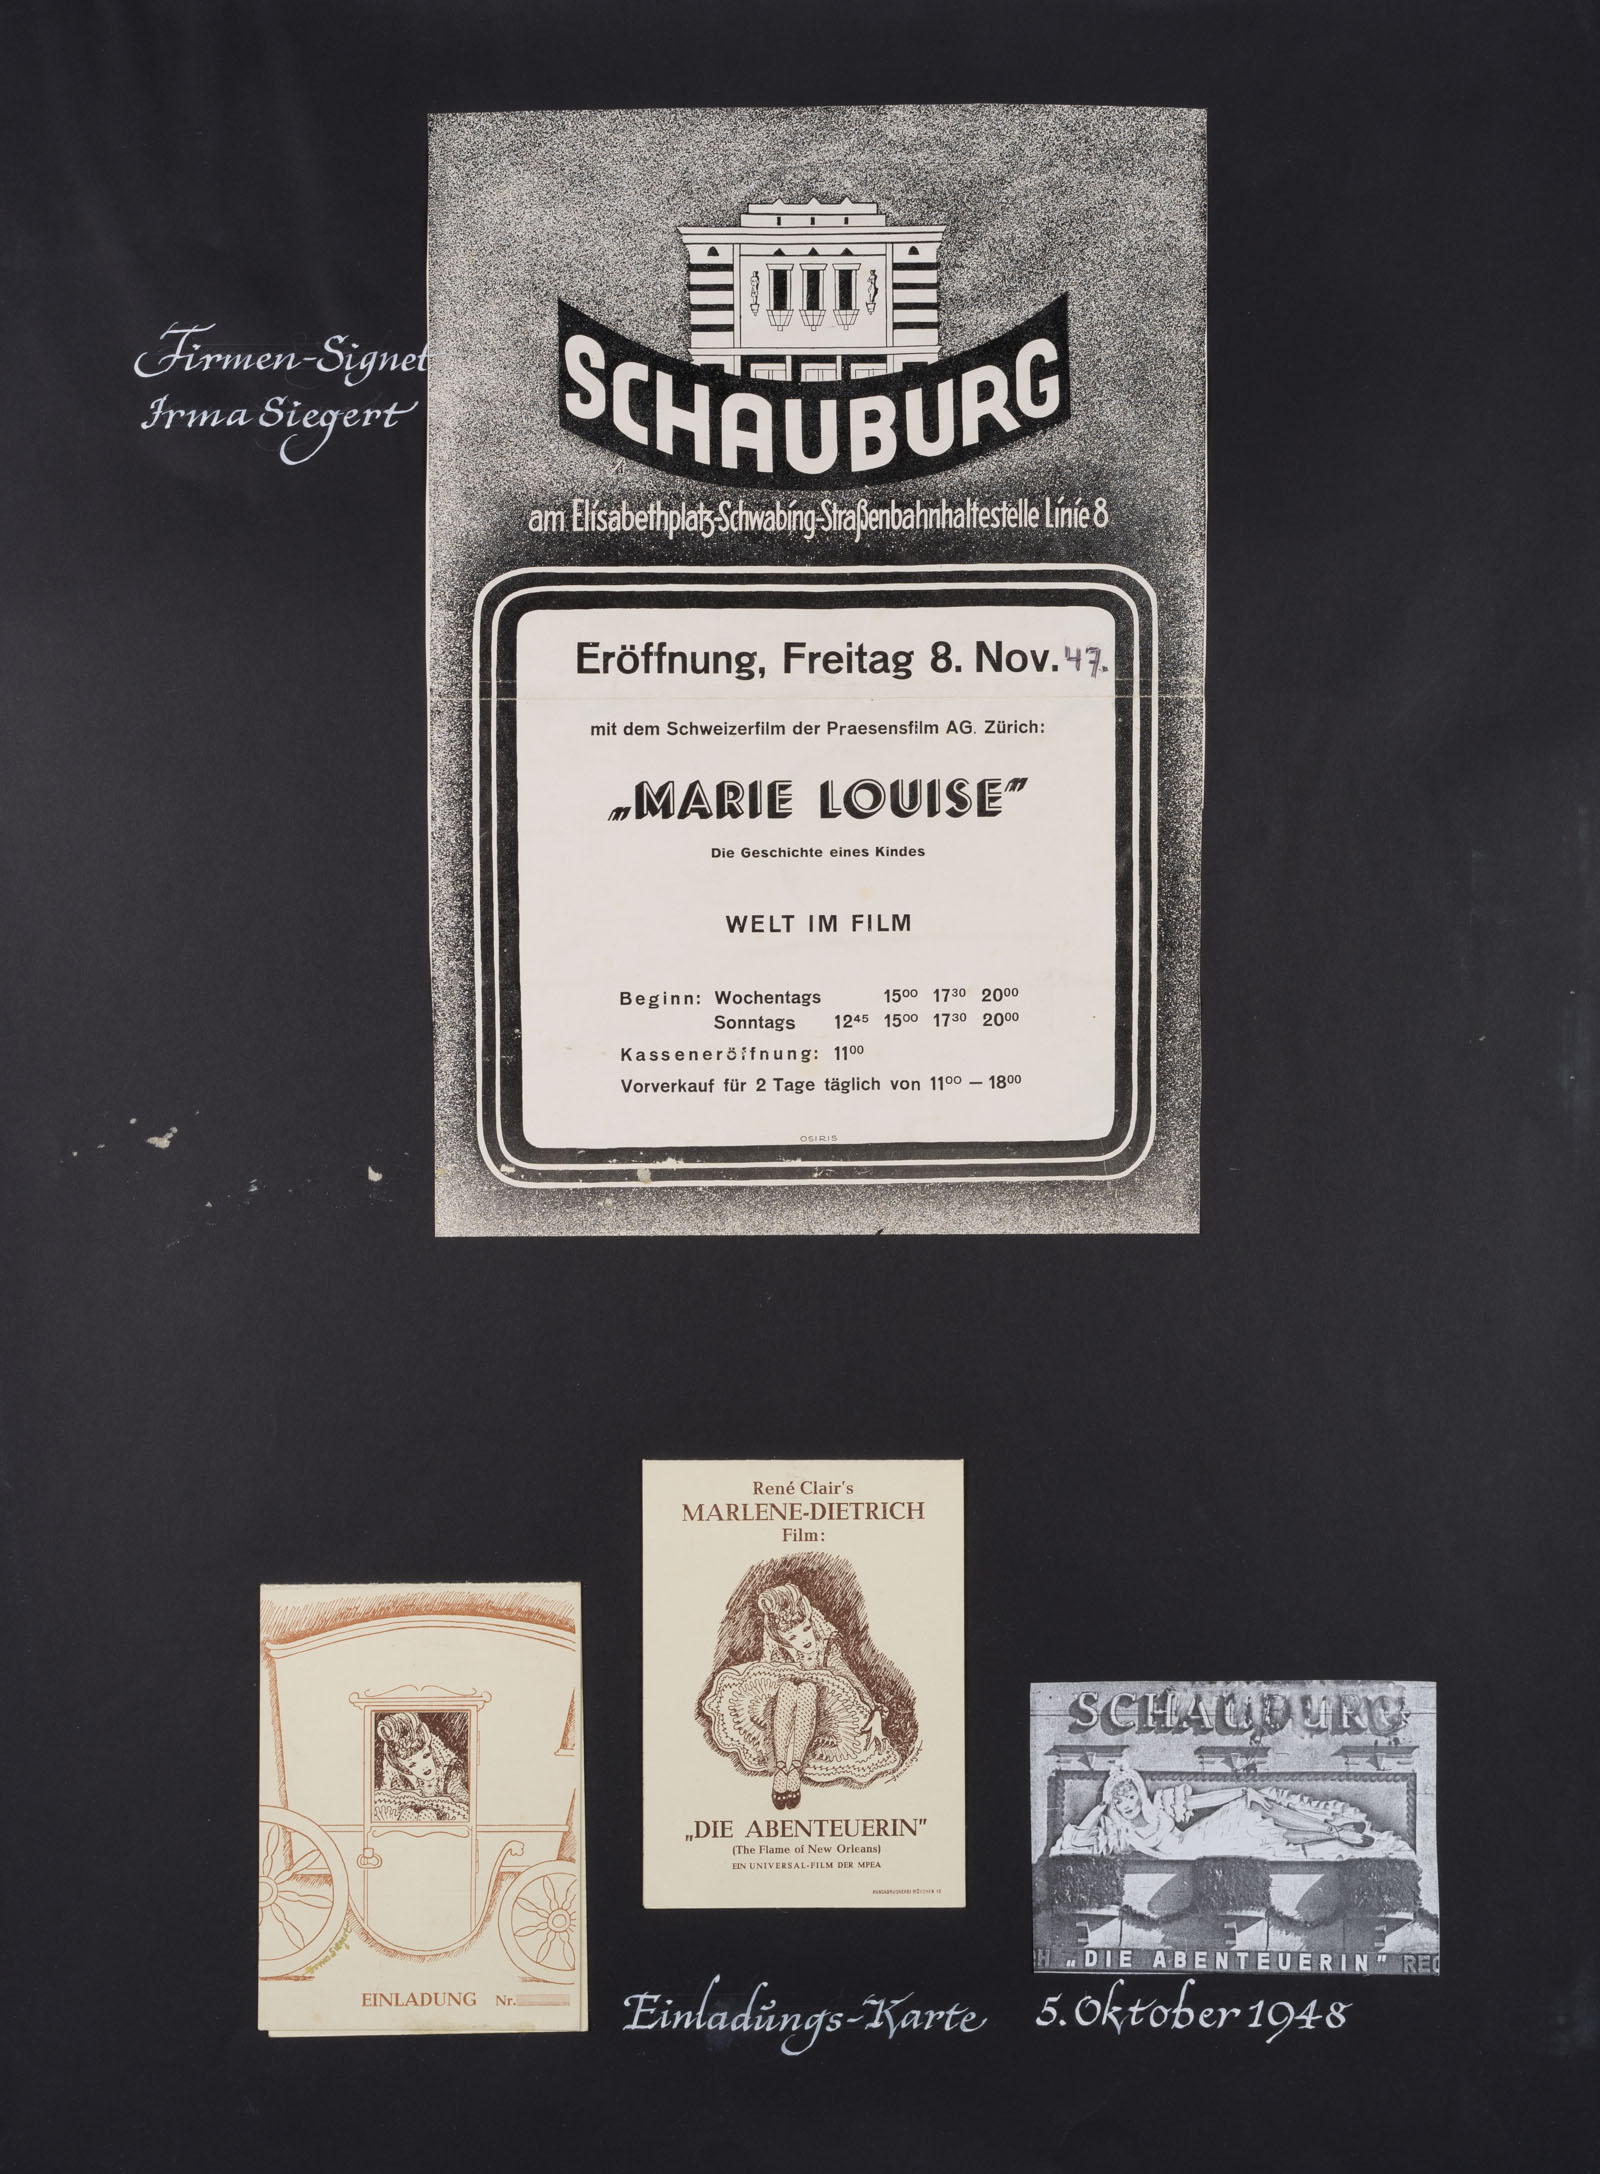 Firmen-Signet
Irma Siegert
SCHAUBURG
am Elisabethplatz-Schwabing-Straßenbahnhaltestelle Linie 8
Eröffnung, Freitag 8. Nov. 47.
mit dem Schweizerfilm der Praesensfilm AG. Zürich:
„MARIE LOUISE”
Die Geschichte eines Kindes
WELT IM FILM
Beginn: Wochentags 15⁰⁰ 17³⁰ 20⁰⁰
Sonntags 12⁴⁵ 15⁰⁰ 17³⁰ 20⁰⁰
Kasseneröffnung: 11⁰⁰
Vorverkauf für 2 Tage täglich von 11⁰⁰ — 18⁰⁰
OSIRIS
René Clair's
MARLENE-DIETRICH
Film:
„DIE ABENTEUERIN”
(The Flame of New Orleans)
EIN UNIVERSAL-FILM DER MPEA
Irma Siegert
EINLADUNG Nr.
SCHAUBURG
„DIE ABENTEUERIN”
Einladungs-Karte
5. Oktober 1948